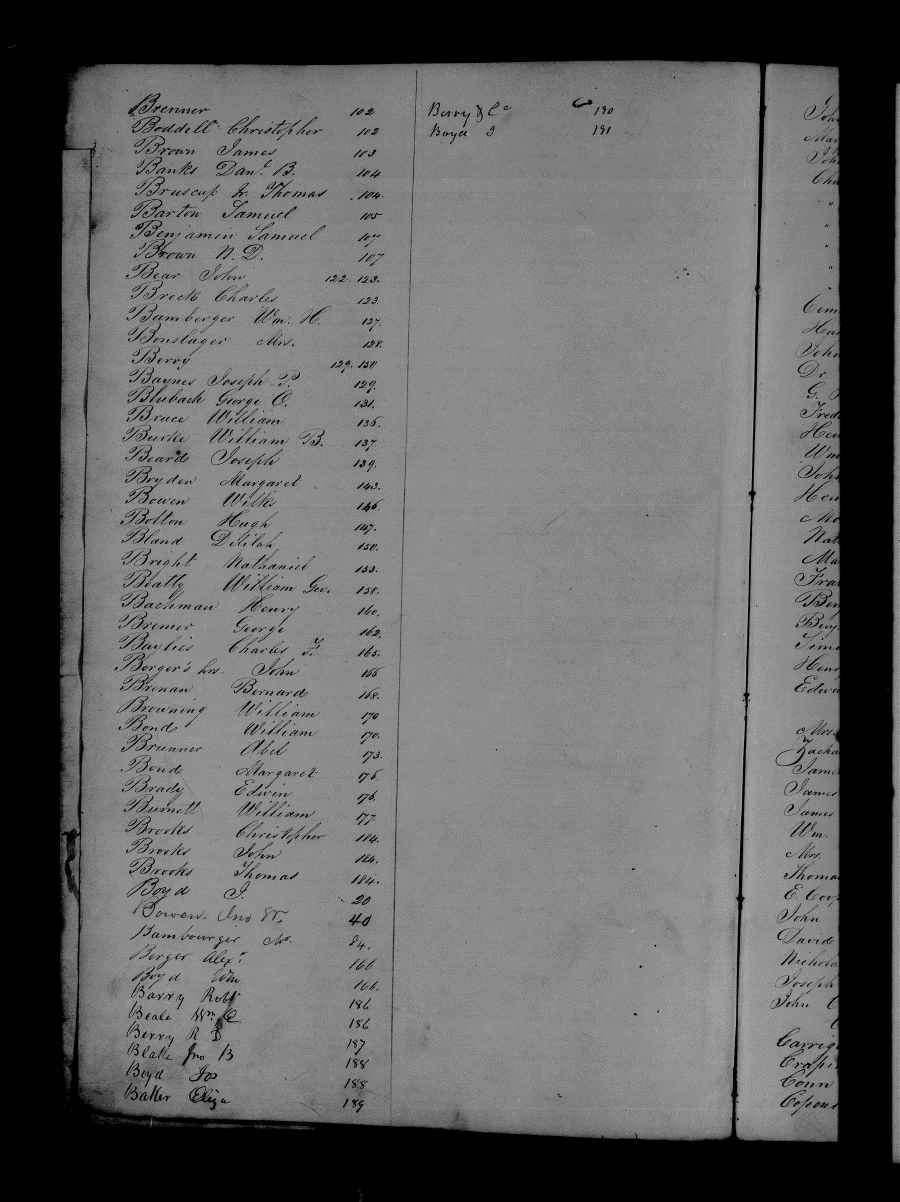 Brenner 102
Boddell Christopher 102
Brown James 103
Banks Danl. B. 104
Bruscup Jr. Thomas 104.
Barton Samuel 105
Benjamin Samuel 107
Brown N. D. 107
Bear John 122. 123.
Breck Charles 123.
Bamberger Wm. H. 127.
Bonslager Mrs. 128.
Berry 129. 130
Baynes Joseph P. 129.
Blubach George O. 131.
Bruce William 136.
Burke William B. 137
Beard Joseph 139.
Bryden Margaret 143.
Bowen Wilks 146.
Bolton Hugh 147.
Bland Delilah 150.
Bright Nathaniel 153.
Beatty William Geo. 158.
Bachman Henry 160.
Bremer George 162.
Baylies Charles F. 165.
Berger's hrs. John 166
Brenan Bernard 168.
Browning William 170
Bond William 170.
Brunner Abel 173.
Bond Margaret 176.
Brady Edwin 176.
Burnett William 177.
Brooks Christopher 184.
Brooks John 184.
Brooks Thomas 184.
Boyd J. 20
Bowen. Jno Sr. 40
Bambourger 84.
Berger Alexr. 166
Boyd Wm 166.
Barry Robt 186
Beale Wm C 186
Berry R D 187
Blake Jno B 188
Boyd Jos 188
Baker Eliza 189
Berry & Co 190
Boyd J 191
John
Dr.
G.
Wm
John
Mrs.
James
James
James
Wm.
Mrs.
John
David
Joseph
John
Conn